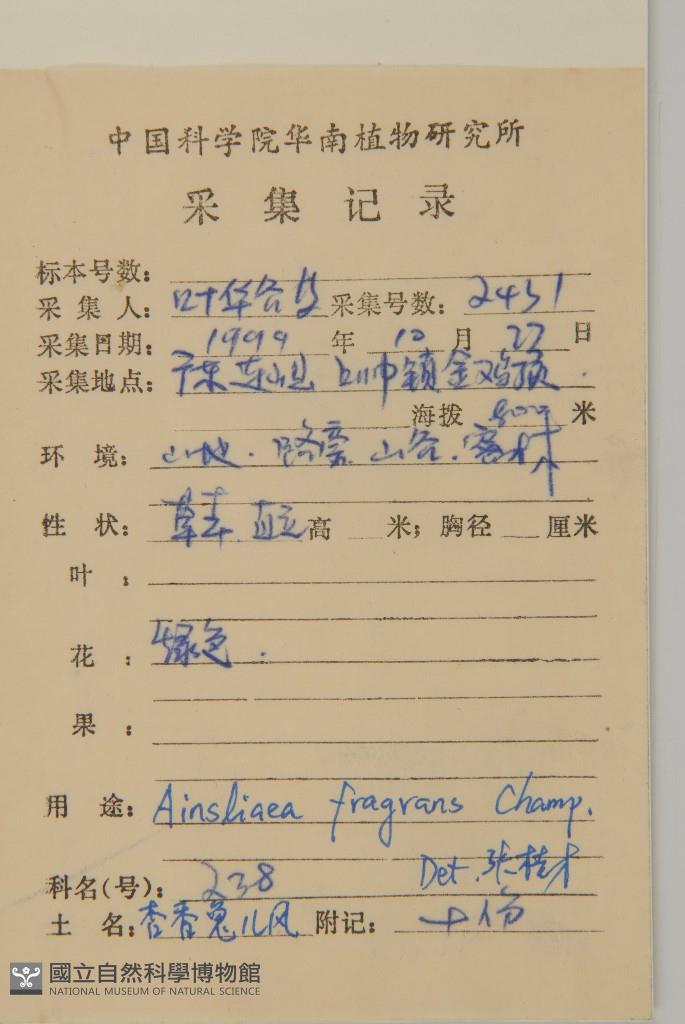 中国科学院华南植物研究所
采集记录
标本号数:
采集人: 叶华谷 采集号数: 2431
采集日期: 1999 年 10 月 27 日
采集地点: 广东 镇金鸡
海拨 米
环境: 山地. 路旁. 山谷. 密林
性状: 草本. 直立 高 米; 胸径 厘米
叶:
花: 绿色.
果:
用途: Ainsliaea fragrans Champ.
科名(号): 238 Det. 张桂才
土名: 杏香兔儿风 附记: 十份
國立自然科學博物館
NATIONAL MUSEUM OF NATURAL SCIENCE